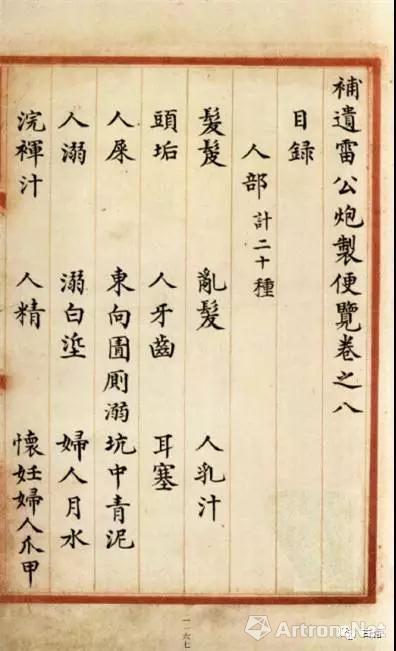 補遺雷公炮製便覽卷之八
目録
人部 計二十種
髮髲 亂髮 人乳汁
頭垢 人牙齒 耳塞
人屎 東向圊厠溺坑中青泥
人溺 溺白垽 婦人月水
浣褌汁 人精 懷妊婦人爪甲
一一六七
ArtronNet